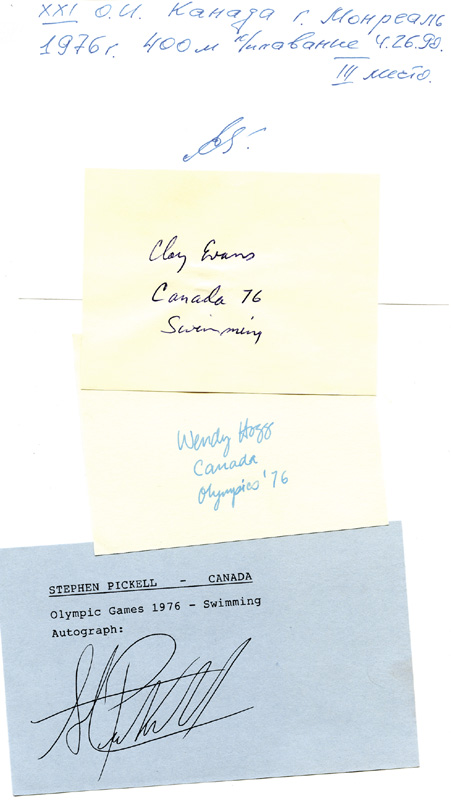 XXI О.И. Канада г. Монреаль
1976г. 400м к/плавание 4.26.90.
III место.
Clay Evans
Canada 76
Swimming
Wendy Hogg
Canada
Olympics '76
STEPHEN PICKELL - CANADA
Olympic Games 1976 - Swimming
Autograph: